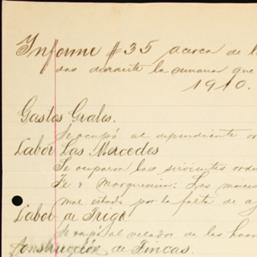 Informe #35 acerca de l
das durante la semana que
1910.
Gastos Grales.
Se ocupó al dependiente
Labor Las Mercedes
Se ocuparon los sirvientes
Te y Los
mal estado por la falta de a
Labor de Trigo
velador de las
Construcción de Fincas.